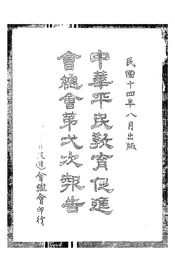 民國十四年八月出版
中華平民教育促進
會總會第弍次報告
進會總會印行